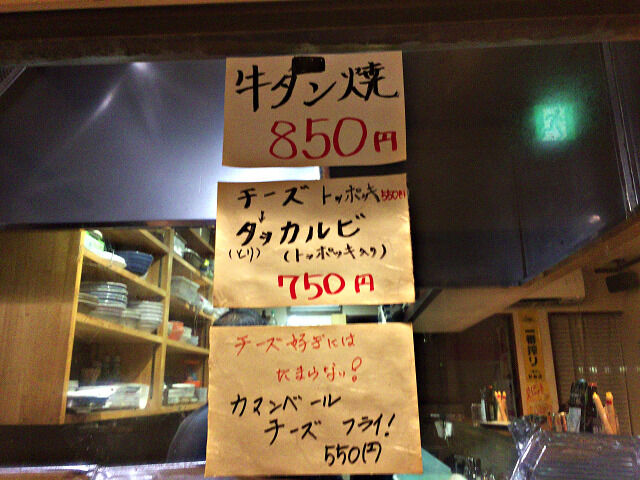 牛タン焼
850円
チーズ トッポッキ 550円
ダッカルビ
(とり) (トッポッキ入り)
750円
チーズ好きには
たまらない!
カマンベール
チーズ フライ!
550円
一番搾り